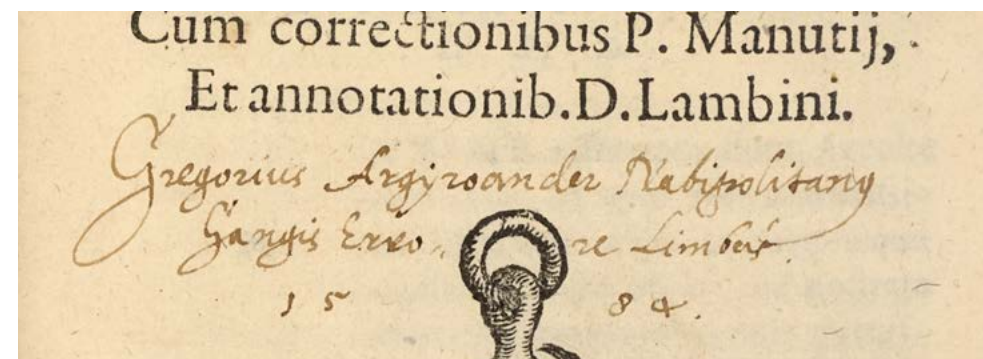 Cum correctionibus P. Manutij,
Et annotationib. D. Lambini.
Gregorius Argyroander Nabipolitanꝰ
15 84.